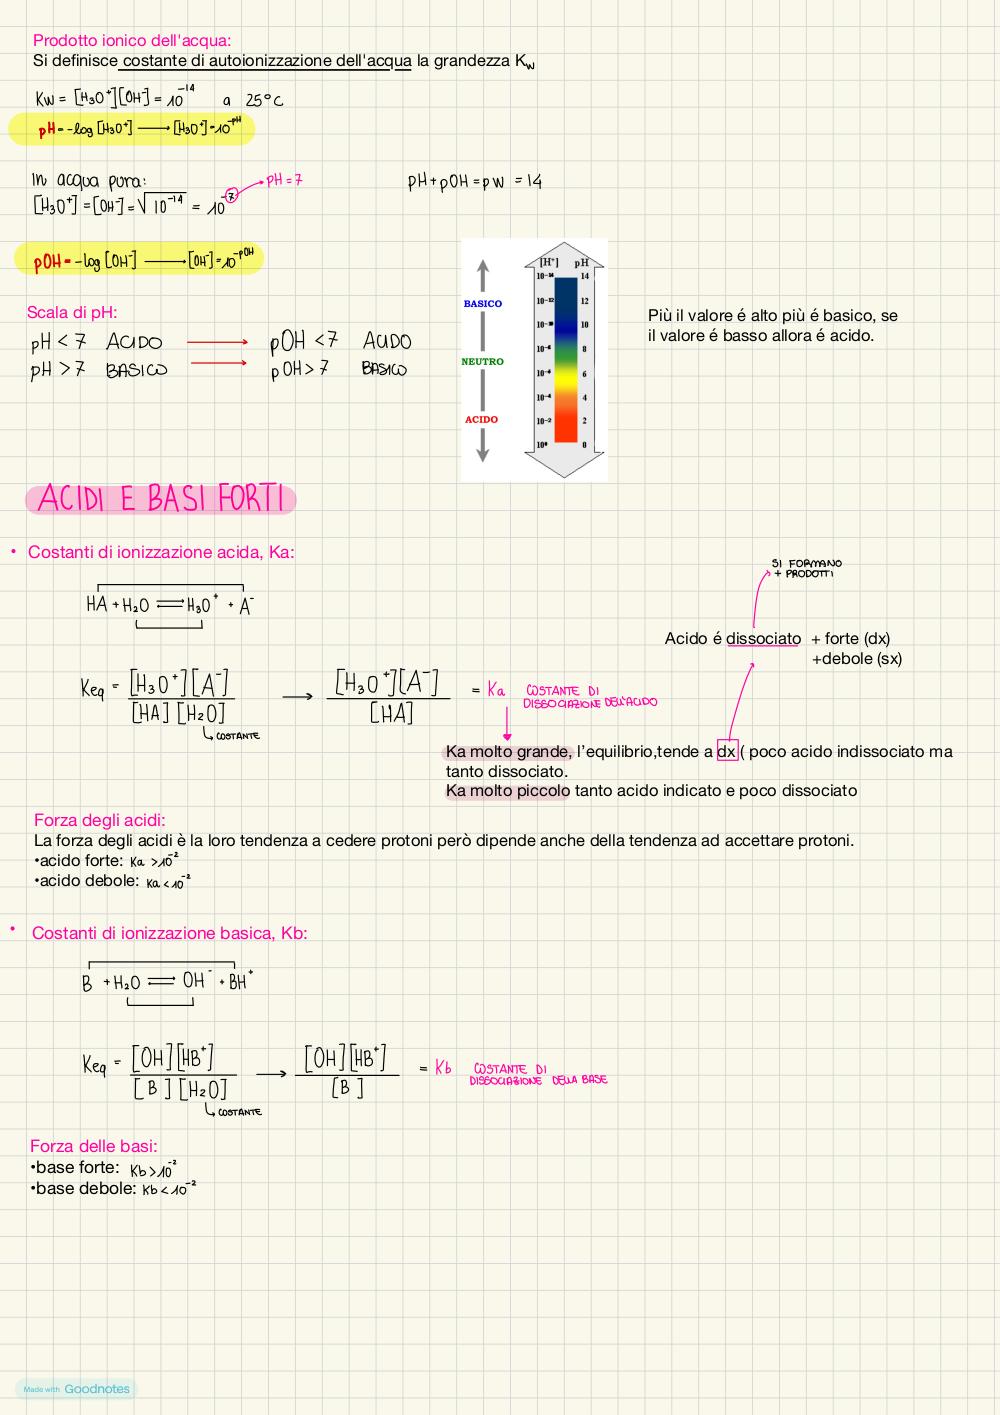 Prodotto ionico dell'acqua:
Si definisce costante di autoionizzazione dell'acqua la grandezza Kw
Kw = [H₃O⁺][OH⁻] = 10⁻¹⁴ a 25°C
pH = -log [H₃O⁺] → [H₃O⁺] = 10⁻ᵖᴴ
In acqua pura: pH = 7
[H₃O⁺] = [OH⁻] = √10⁻¹⁴ = 10⁻⁷
pH + pOH = pw = 14
pOH = -log [OH⁻] → [OH⁻] = 10⁻ᵖᴼᴴ
Scala di pH:
pH < 7 ACIDO → pOH < 7 ACIDO
pH > 7 BASICO → pOH > 7 BASICO
BASICO
NEUTRO
ACIDO
[H⁺] pH
10⁻¹⁴ 14
10⁻¹² 12
10⁻¹⁰ 10
10⁻⁸ 8
10⁻⁶ 6
10⁻⁴ 4
10⁻² 2
10⁰ 0
Più il valore é alto più é basico, se
il valore é basso allora é acido.
ACIDI E BASI FORTI
• Costanti di ionizzazione acida, Ka:
HA + H₂O ⇌ H₃O⁺ + A⁻
SI FORMANO
+ PRODOTTI
Acido é dissociato + forte (dx)
+debole (sx)
Keq = [H₃O⁺][A⁻] / [HA][H₂O] → [H₃O⁺][A⁻] / [HA] = Ka COSTANTE DI
DISSOCIAZIONE DELL'ACIDO
↳ COSTANTE
Ka molto grande, l'equilibrio,tende a dx ( poco acido indissociato ma
tanto dissociato.
Ka molto piccolo tanto acido indicato e poco dissociato
Forza degli acidi:
La forza degli acidi è la loro tendenza a cedere protoni però dipende anche della tendenza ad accettare protoni.
•acido forte: Ka > 10⁻²
•acido debole: Ka < 10⁻²
• Costanti di ionizzazione basica, Kb:
B + H₂O ⇌ OH⁻ + BH⁺
Keq = [OH][HB⁺] / [B][H₂O] → [OH][HB⁺] / [B] = Kb COSTANTE DI
DISSOCIAZIONE DELLA BASE
↳ COSTANTE
Forza delle basi:
•base forte: Kb > 10⁻²
•base debole: Kb < 10⁻²
Made with Goodnotes